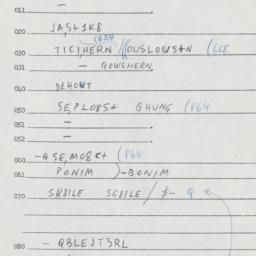 011 —
020 JA,S+1K8
030 TIC,HERN //OWSLOWS+N (668
031 — GOWSHERN
040 DLHOWT
050 SE,PLO8S+ GHUNG (864
051 —
052 —
060 -QSE,MO8C+ (864
061 PONIM )-BONIM
070 SK8ILE SG8ILE / $- Q
080 — QBLEJT3RL